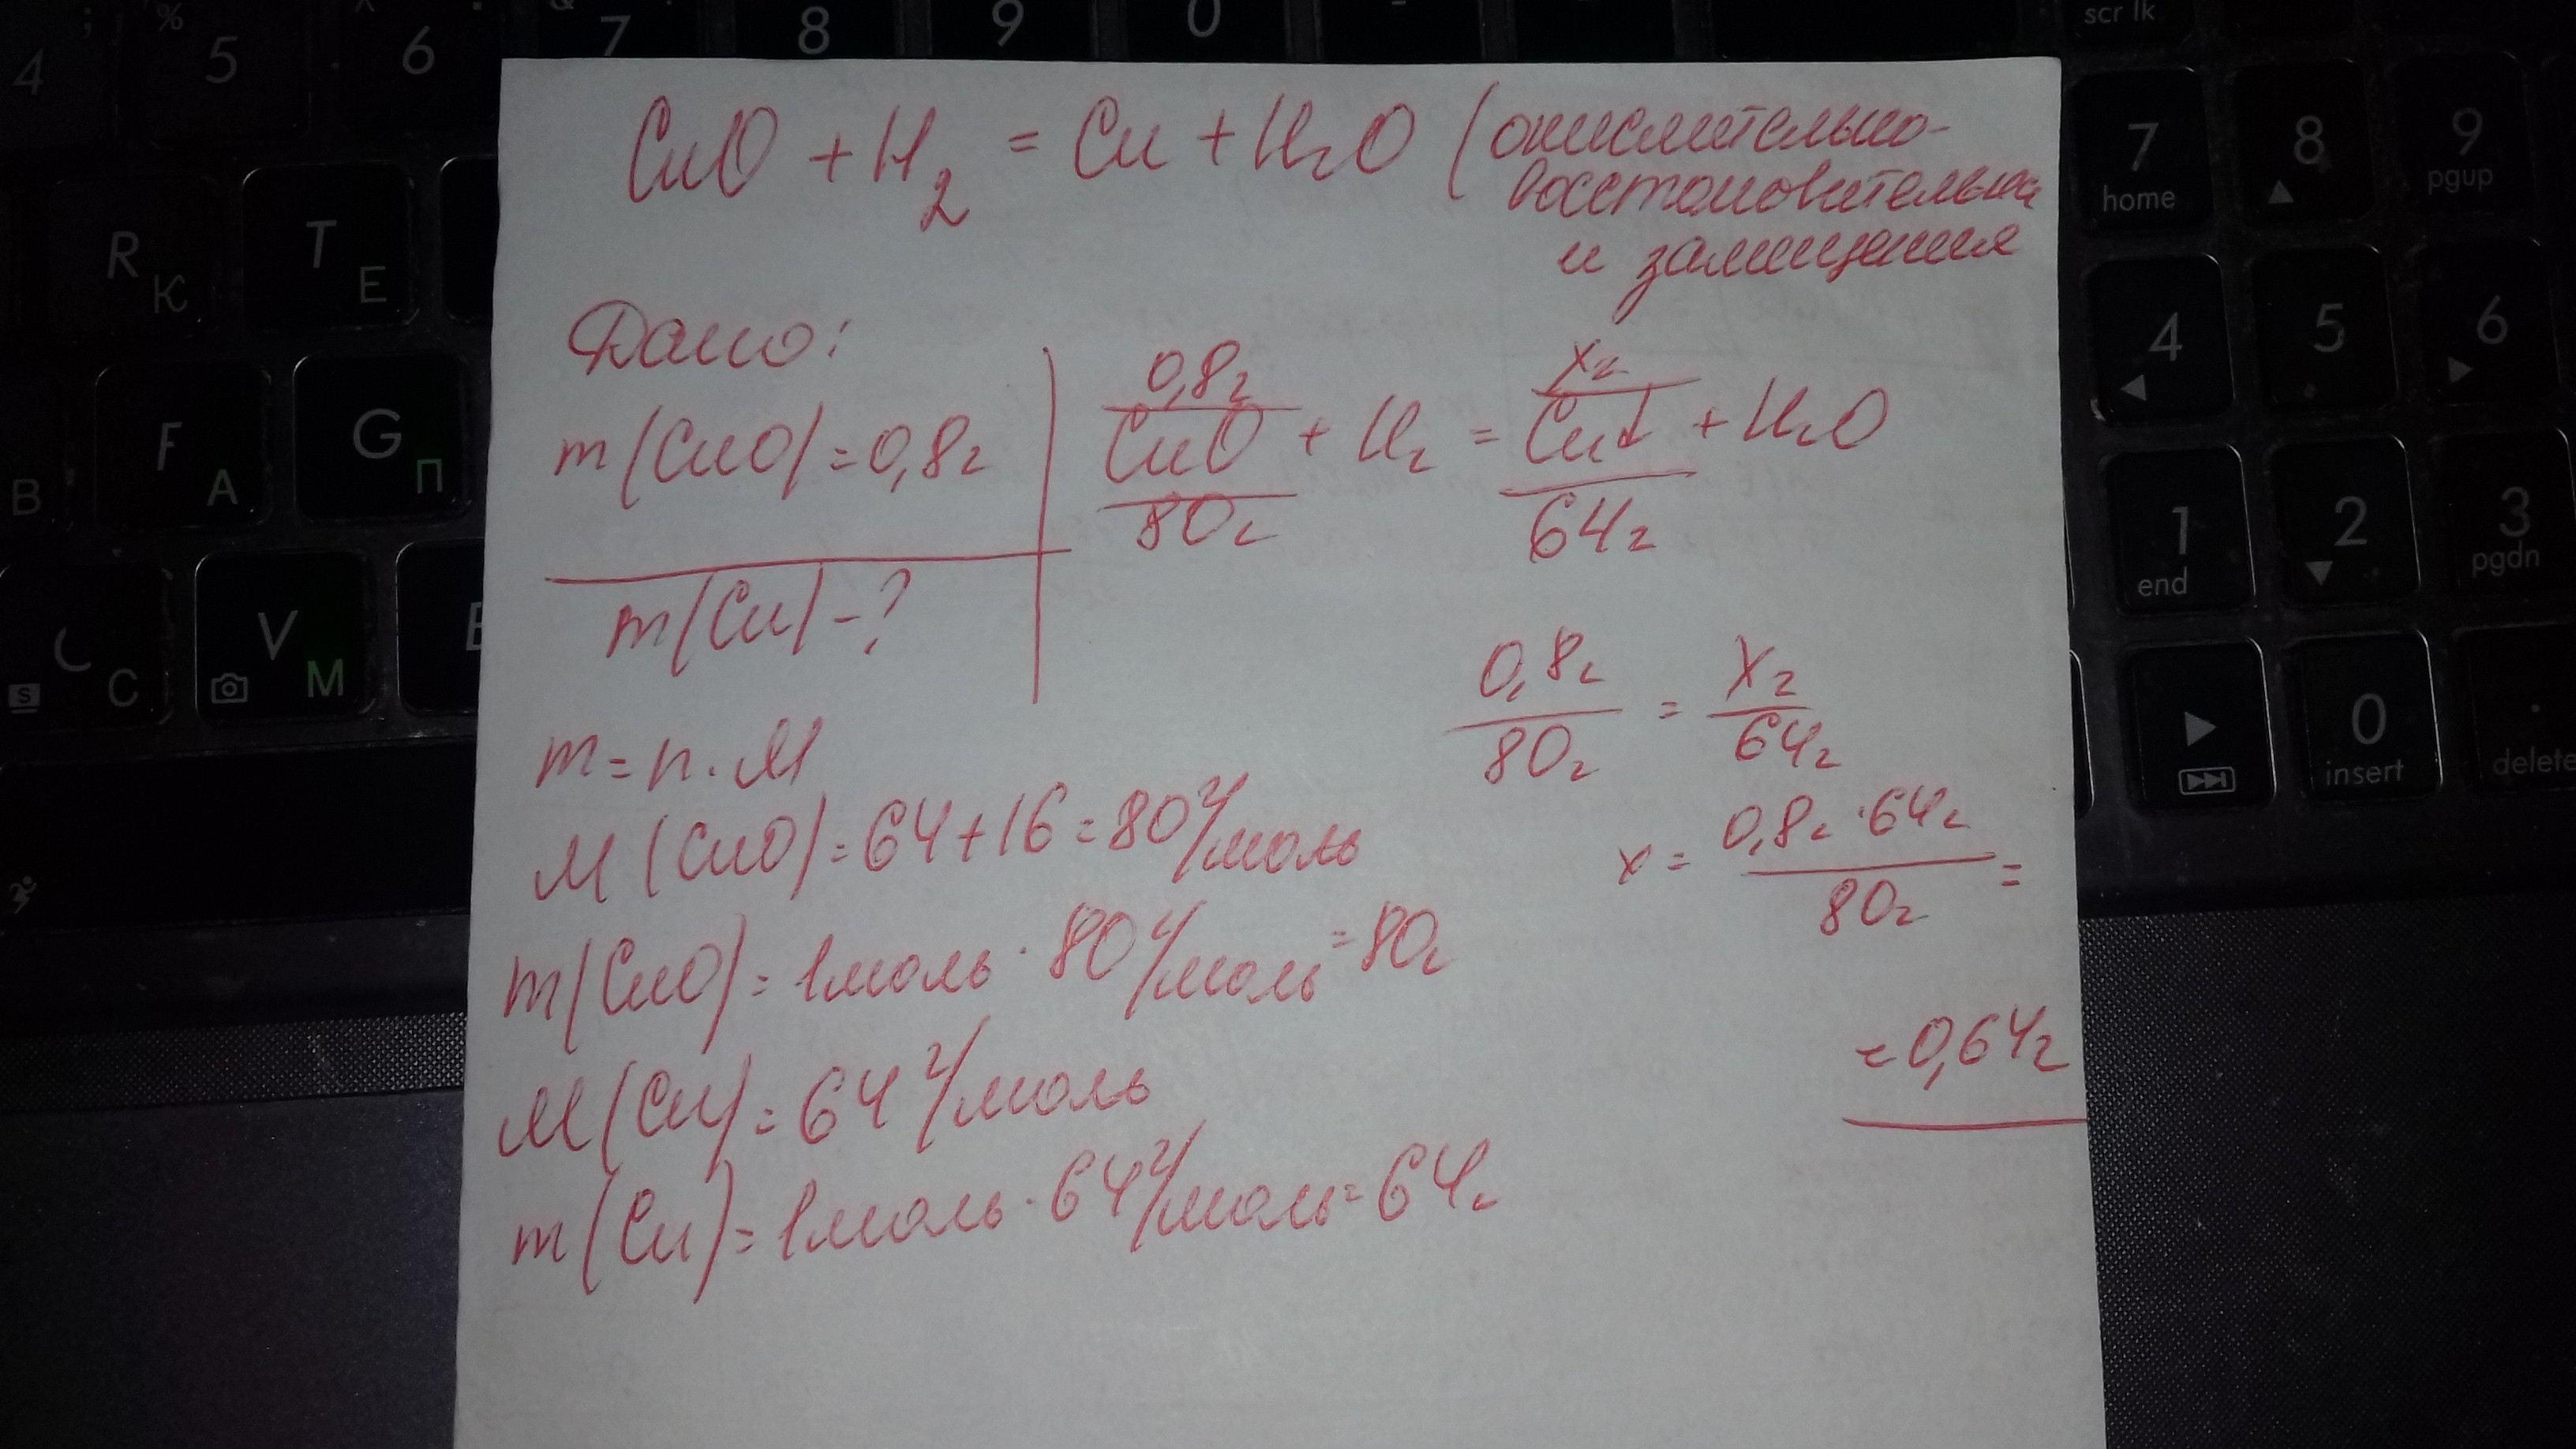 ; % ^ & -
4 5 6 7 8 9 0 scr lk
CuO + H₂ = Cu + H₂O (окислительно-
восстановительная
и замещения
Дано:
m(CuO) = 0,8г
m(Cu) - ?
0,8г хг
CuO + H₂ = Cu↓ + H₂O
80г 64г
0,8г/80г = хг/64г
х = 0,8г · 64г/80г =
= 0,64г
m = n · M
M(CuO) = 64 + 16 = 80 г/моль
m(CuO) = 1моль · 80 г/моль = 80г
M(Cu) = 64 г/моль
m(Cu) = 1моль · 64 г/моль = 64г
R К T Е
F А G П
В
С V М
S
7 home 8 9 pgup
4 5 6
1 end 2 3 pgdn
0 insert . delete